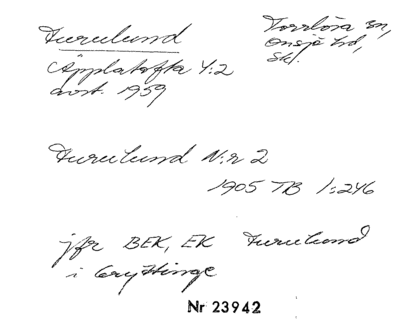 Furulund
Torrlösa sn,
Onsjö hd,
Sk.
Äpplatofta 4:2
avst. 1959
Furulund N:r 2
1905 TB 1:246
jfr BEK, EK Furulund
i
Nr 23942